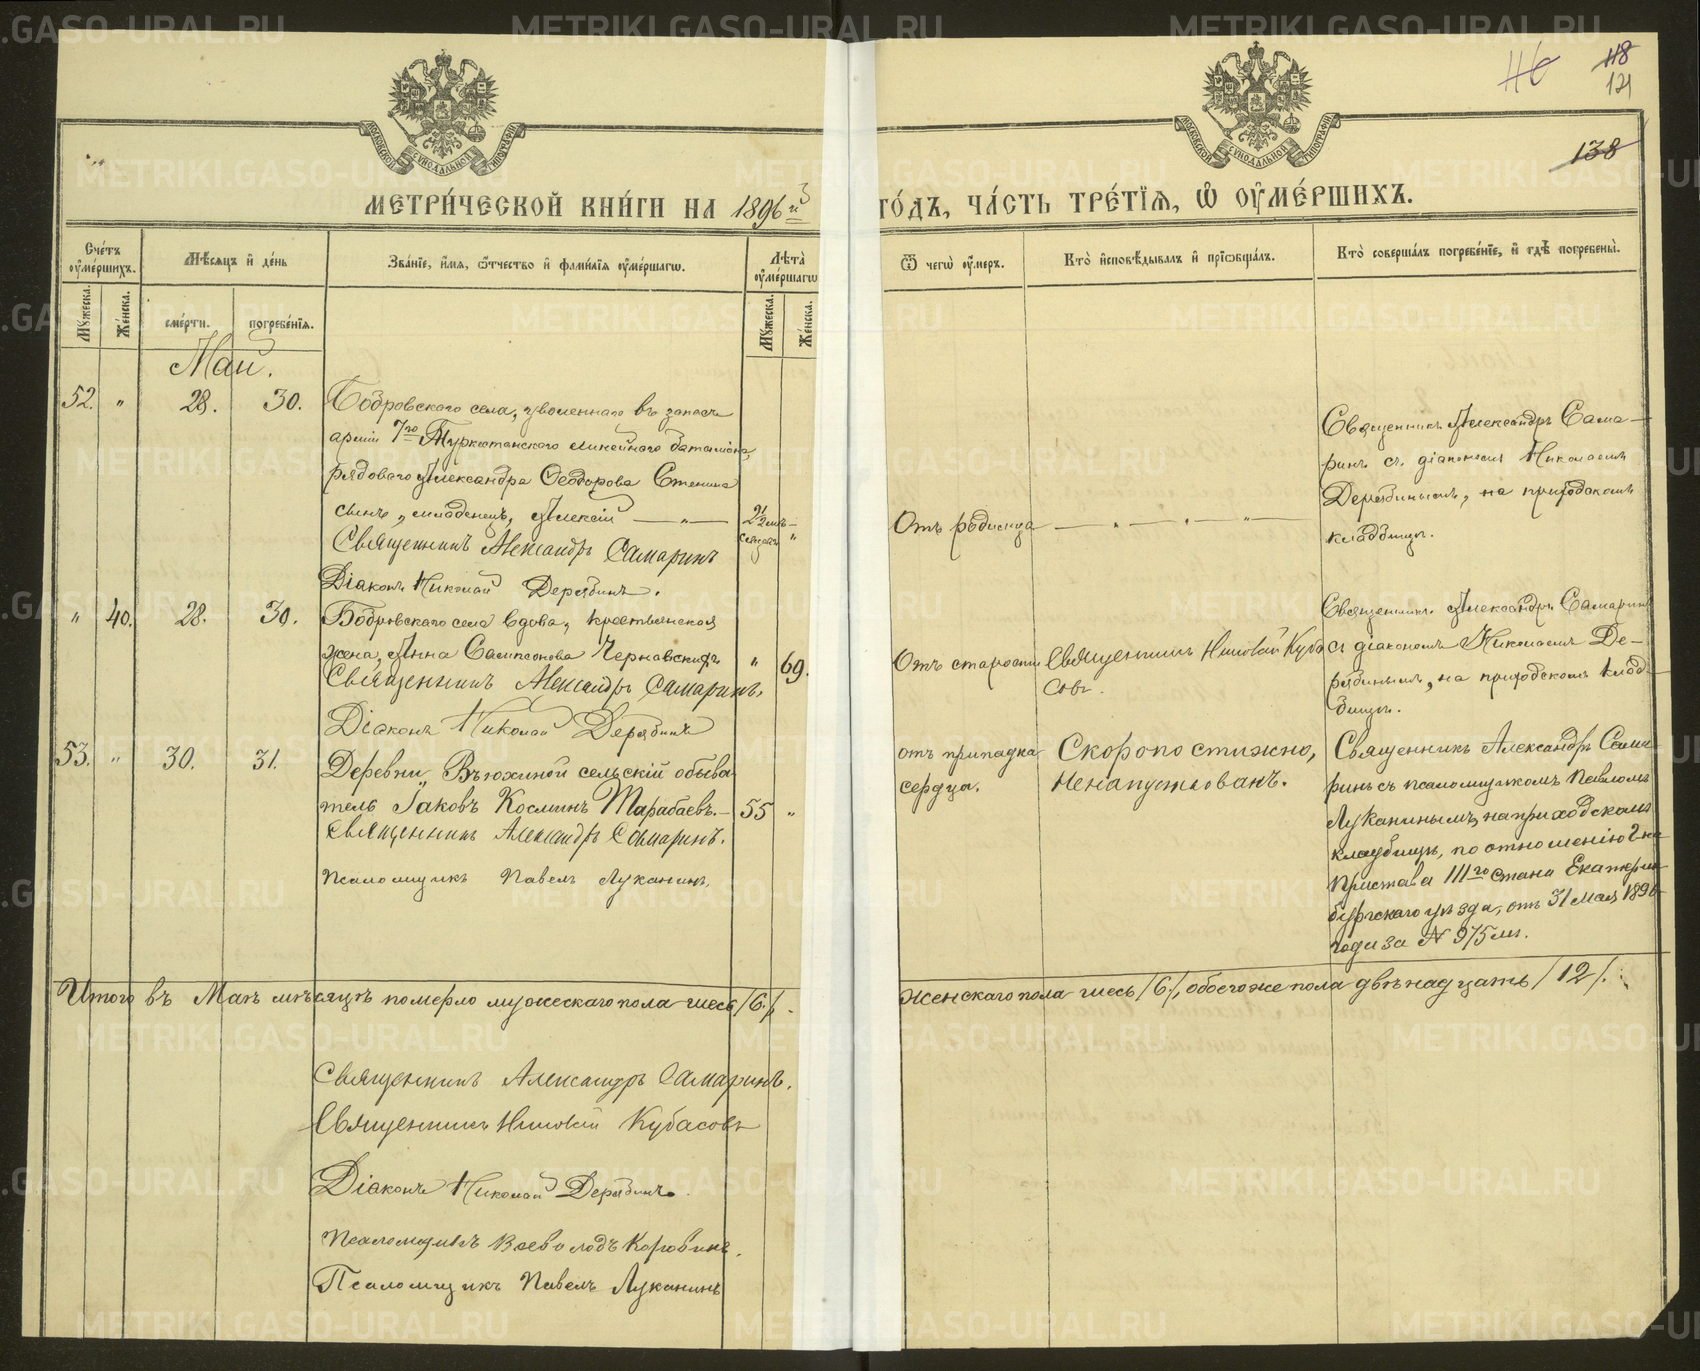 118
121
138
МОСКОВСКОЙ СѴНОДАЛЬНОЙ ТИПОГРАФІИ
МОСКОВСКОЙ СѴНОДАЛЬНОЙ ТИПОГРАФІИ
МЕТРИ́ЧЕСКОЙ КНИ́ГИ НА 1896й ГО́ДЪ, ЧА́СТЬ ТРЕ́ТІѦ, Ѡ҆ ОУ҆МЕ́РШИХЪ.
Сче́тъ оу҆ме́ршихъ.
Мѣ́сѧцъ и҆ де́нь
Зва́нїе, и҆́мѧ, ѻ҆́тчество и҆ фами́лїѧ оу҆ме́ршагѡ.
Лѣ́та оу҆ме́ршагѡ
Ѿ чегѡ̀ оу҆́меръ.
Кто̀ и҆сповѣ́дывалъ и҆ прїѡбща́лъ.
Кто̀ соверша́лъ погребе́нїе, и҆ гдѣ̀ погребены̀.
Мꙋ́жеска.
Же́нска.
сме́рти.
погребе́нїѧ.
Мꙋ́жеска.
Же́нска.
Май.
52. " 28. 30.
Бобровскаго села, уволеннаго въ запасъ
арміи 7го Туркестанскаго линейнаго баталіона,
рядоваго Александра Ѳеодорова Стенина
сынъ, младенецъ, Алексій — " —
Священникъ Александръ Самаринъ
Діаконъ Николай Дерябинъ.
2½ мѣсяцевъ "
Отъ родимца — " — " — " —
Священникъ Александръ Сама-
ринъ съ діакономъ Николаемъ
Дерябинымъ, на приходскомъ
кладбищѣ.
" 40. 28. 30.
Бобровскаго села вдова, крестьянская
жена, Анна Сампсонова Чернавскихъ
Священникъ Александръ Самаринъ.
Діаконъ Николай Дерябинъ
" 69.
Отъ старости
Священникъ Куба
совъ.
Священникъ Александръ Самаринъ
съ діакономъ Николаемъ Де-
рябинымъ, на приходскомъ клад-
бищѣ.
53. " 30. 31.
Деревни Вьюхиной сельскій обыва
тель Іаковъ Косминъ Тарабаевъ.—
Священникъ Александръ Самаринъ.
Псаломщикъ Павелъ Луканинъ.
55 "
отъ припадка
сердца.
Скоропостижно,
ненапутствованъ.
Священникъ Александръ Сама
ринъ съ псаломщикомъ Павломъ
Луканинымъ, на приходскомъ
кладбищѣ, по отношенію Г-на
Пристава III го стана Екатерин
бургскаго уѣзда, отъ 31 Мая 1896
года за № 975 мъ.
Итого въ Маѣ мѣсяцѣ померло мужескаго пола шесть /6./. женскаго пола шесть /6./, обоего же пола двѣнадцать /12/.
Священникъ Александръ Самаринъ.
Священникъ Кубасовъ
Діаконъ Николай Дерябинъ.
Псаломщикъ Всеволодъ Коровинъ.
Псаломщикъ Павелъ Луканинъ
METRIKI.GASO-URAL.RU